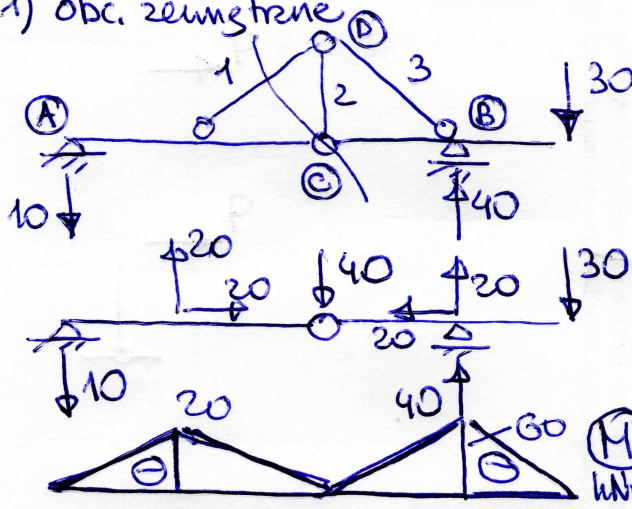 1) Obc. zewnętrzne
D
1
2
3
30
A
B
C
10
40
20
20
40
20
30
20
10
20
40
60
M
⊖
⊖
kN